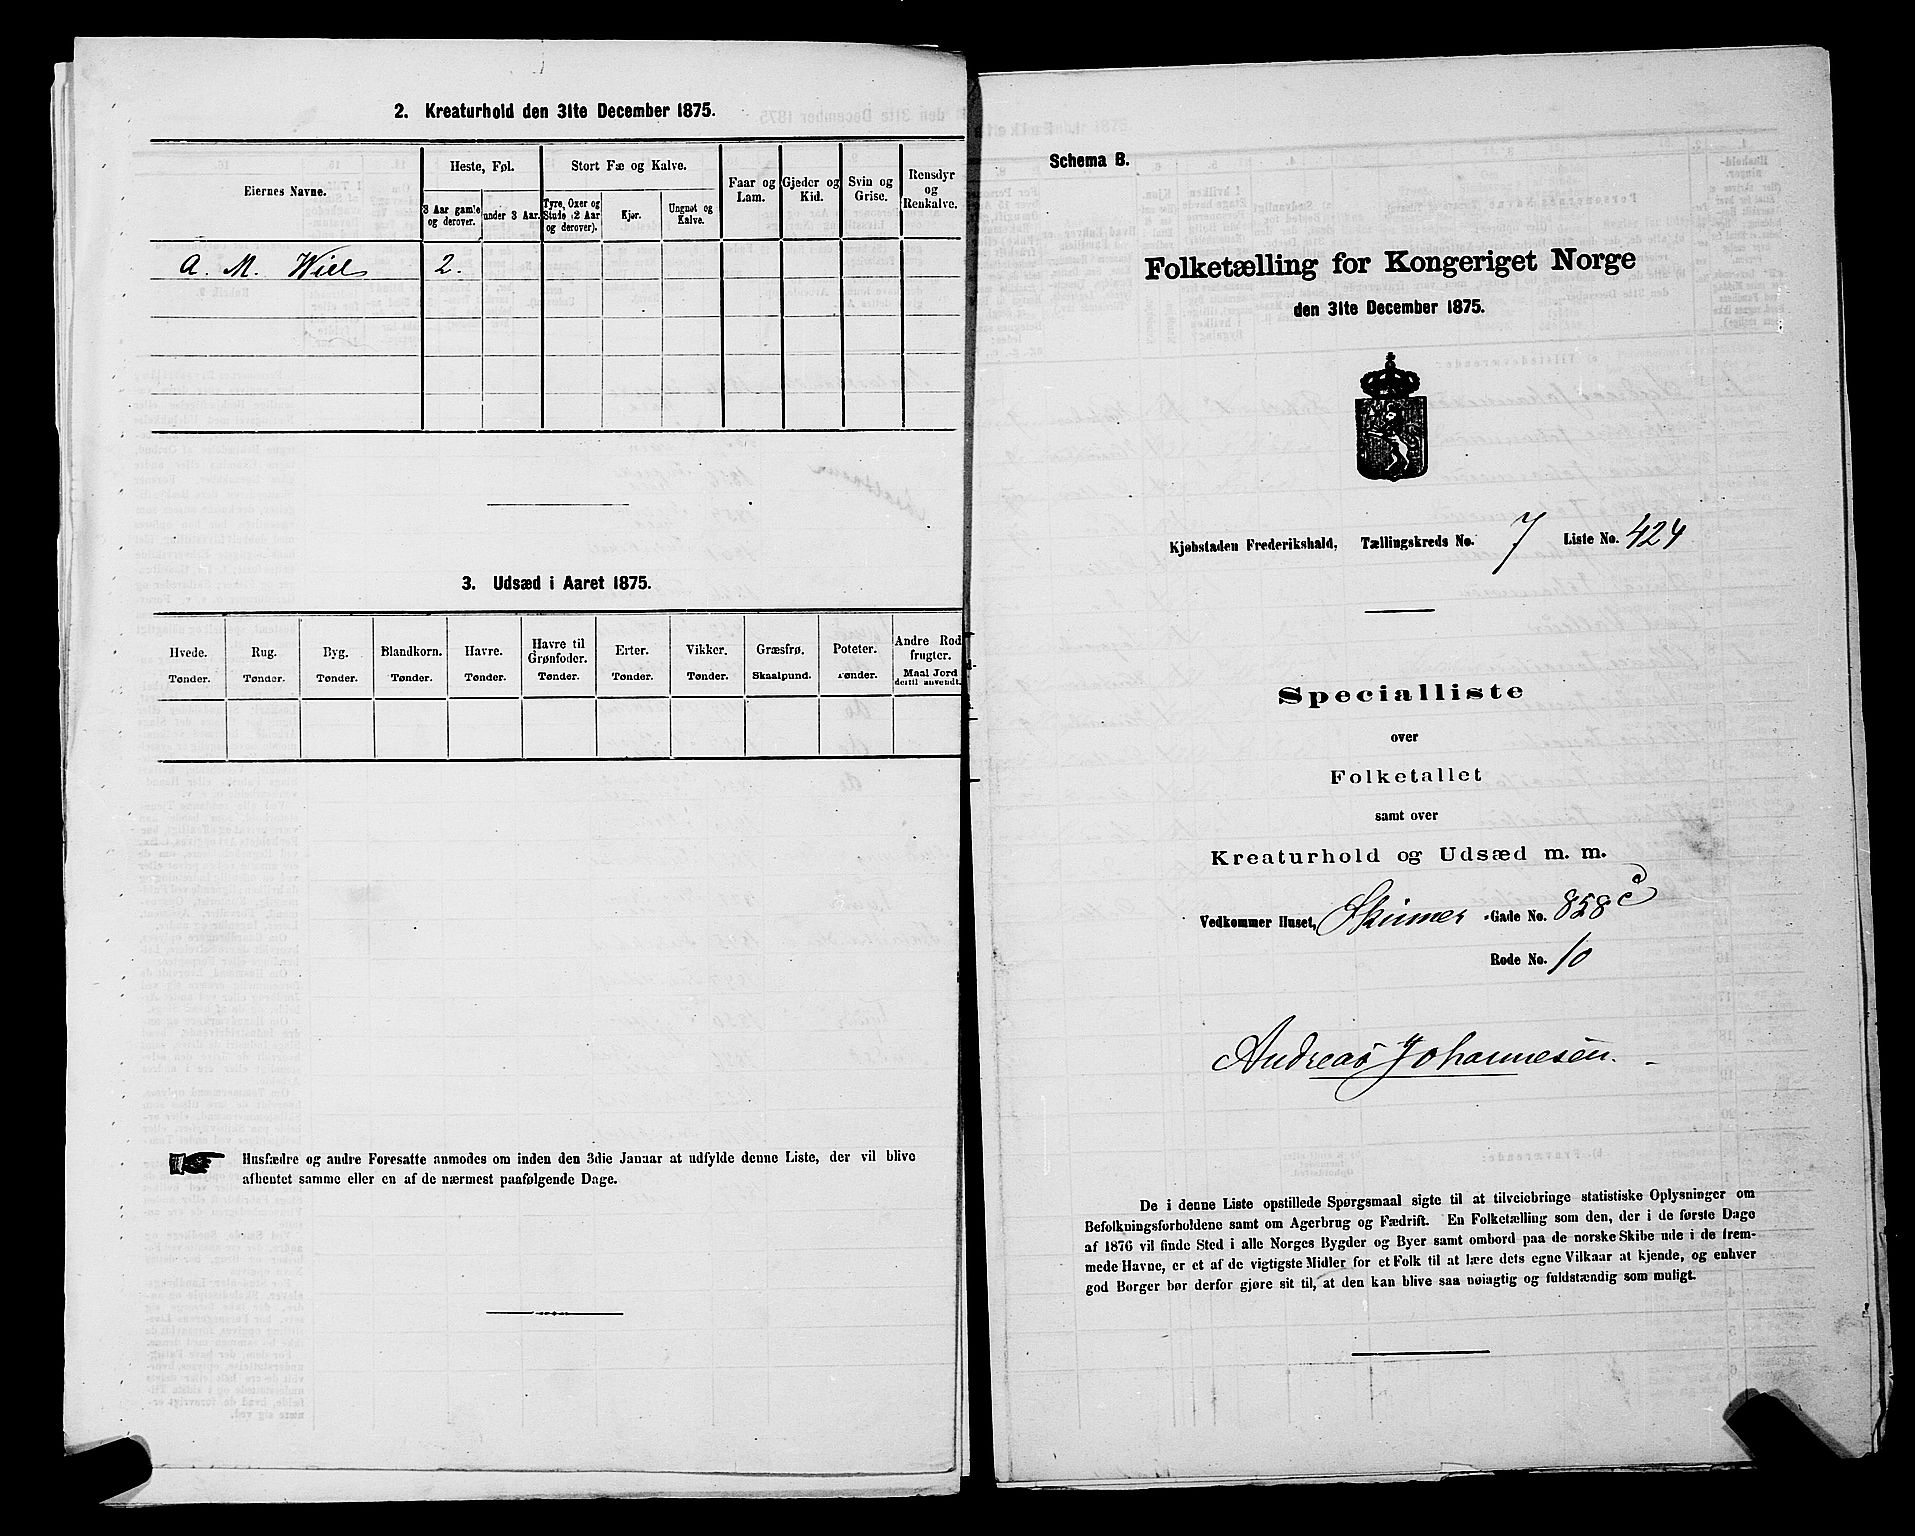 2. Kreaturhold den 31te December 1875.
Eiernes Navne.
Heste, Føl.
Stort Fæ og Kalve.
3 Aar gamle og derover.
under 3 Aar.
Tyre, Oxer og Stude (2 Aar og derover).
Kjør.
Ungnøt og Kalve.
Faar og Lam.
Gjeder og Kid.
Svin og Grise.
Rensdyr og Renkalve.
A. M. Wiel 2.
3. Udsæd i Aaret 1875.
Hvede. Rug. Byg. Blandkorn. Havre. Havre til Grønfoder. Erter. Vikker. Græsfrø. Poteter. Andre Rodfrugter.
Tønder. Tønder. Tønder. Tønder. Tønder. Tønder. Tønder. Tønder. Skaalpund. Tønder. Maal Jord dertil anvendt.
Husfædre og andre Foresatte anmodes om inden den 3die Januar at udfylde denne Liste, der vil blive
afhentet samme eller en af de nærmest paafølgende Dage.
Schema B.
Folketælling for Kongeriget Norge
den 31te December 1875.
Kjøbstaden Frederikshald, Tællingskreds No. 7 Liste No. 424
Specialliste
over
Folketallet
samt over
Kreaturhold og Udsæd m. m.
Vedkommer Huset, Skinner -Gade No. 858 c
Rode No. 10
Andreas Johannesen.
De i denne Liste opstillede Spørgsmaal sigte til at tilveiebringe statistiske Oplysninger om
Befolkningsforholdene samt om Agerbrug og Fædrift. En Folketælling som den, der i de første Dage
af 1876 vil finde Sted i alle Norges Bygder og Byer samt ombord paa de norske Skibe ude i de frem-
mede Havne, er et af de vigtigste Midler for et Folk til at lære dets egne Vilkaar at kjende, og enhver
god Borger bør derfor gjøre sit til, at den kan blive saa nøiagtig og fuldstændig som muligt.